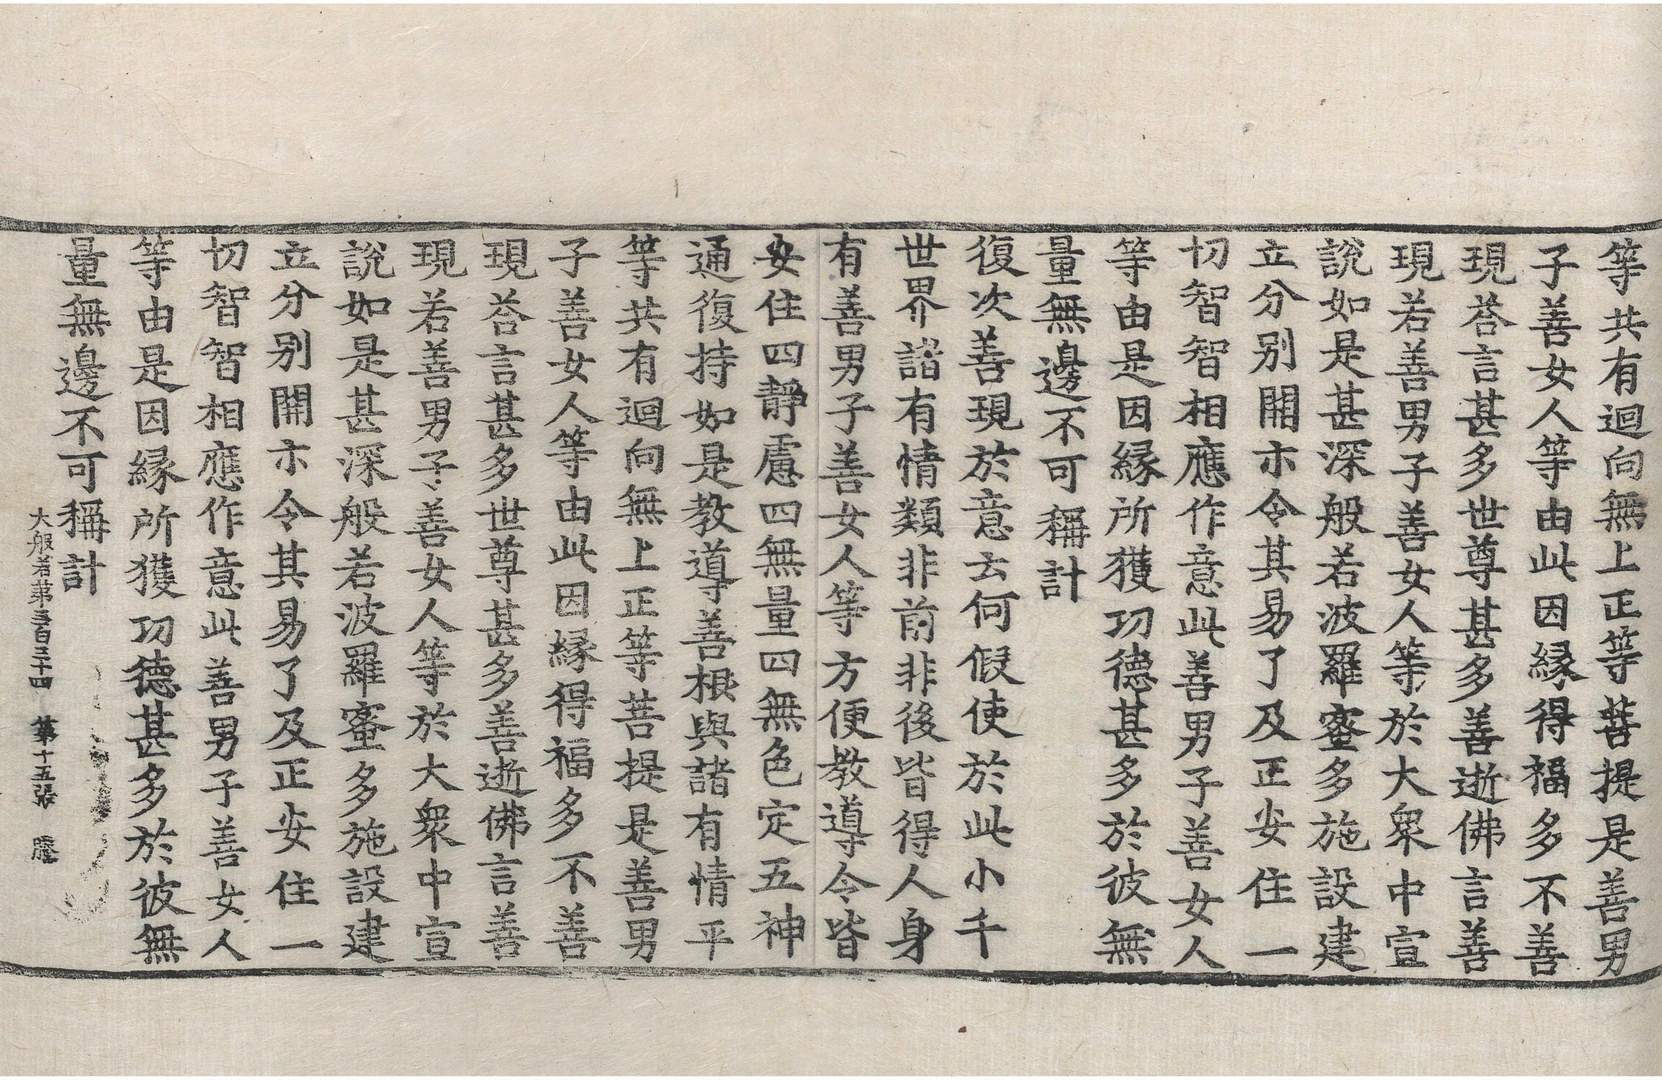 等共有迴向無上正等菩提是善男
子善女人等由此因緣得福多不善
現荅言甚多世尊甚多善逝佛言善
現若善男子善女人等於大衆中宣
說如是甚深般若波羅蜜多施設建
立分别開示令其易了及正安住一
切智智相應作意此善男子善女人
等由是因緣所獲功德甚多於彼無
量無邊不可稱計
復次善現於意云何假使於此小千
世界諸有情類非前非後皆得人身
有善男子善女人等方便教導令皆
安住四靜慮四無量四無色定五神
通復持如是教導善根與諸有情平
等共有迴向無上正等菩提是善男
子善女人等由此因緣得福多不善
現荅言甚多世尊甚多善逝佛言善
現若善男子善女人等於大衆中宣
說如是甚深般若波羅蜜多施設建
立分别開示令其易了及正安住一
切智智相應作意此善男子善女人
等由是因緣所獲功德甚多於彼無
量無邊不可稱計
大般若第五百三十四 第十五張